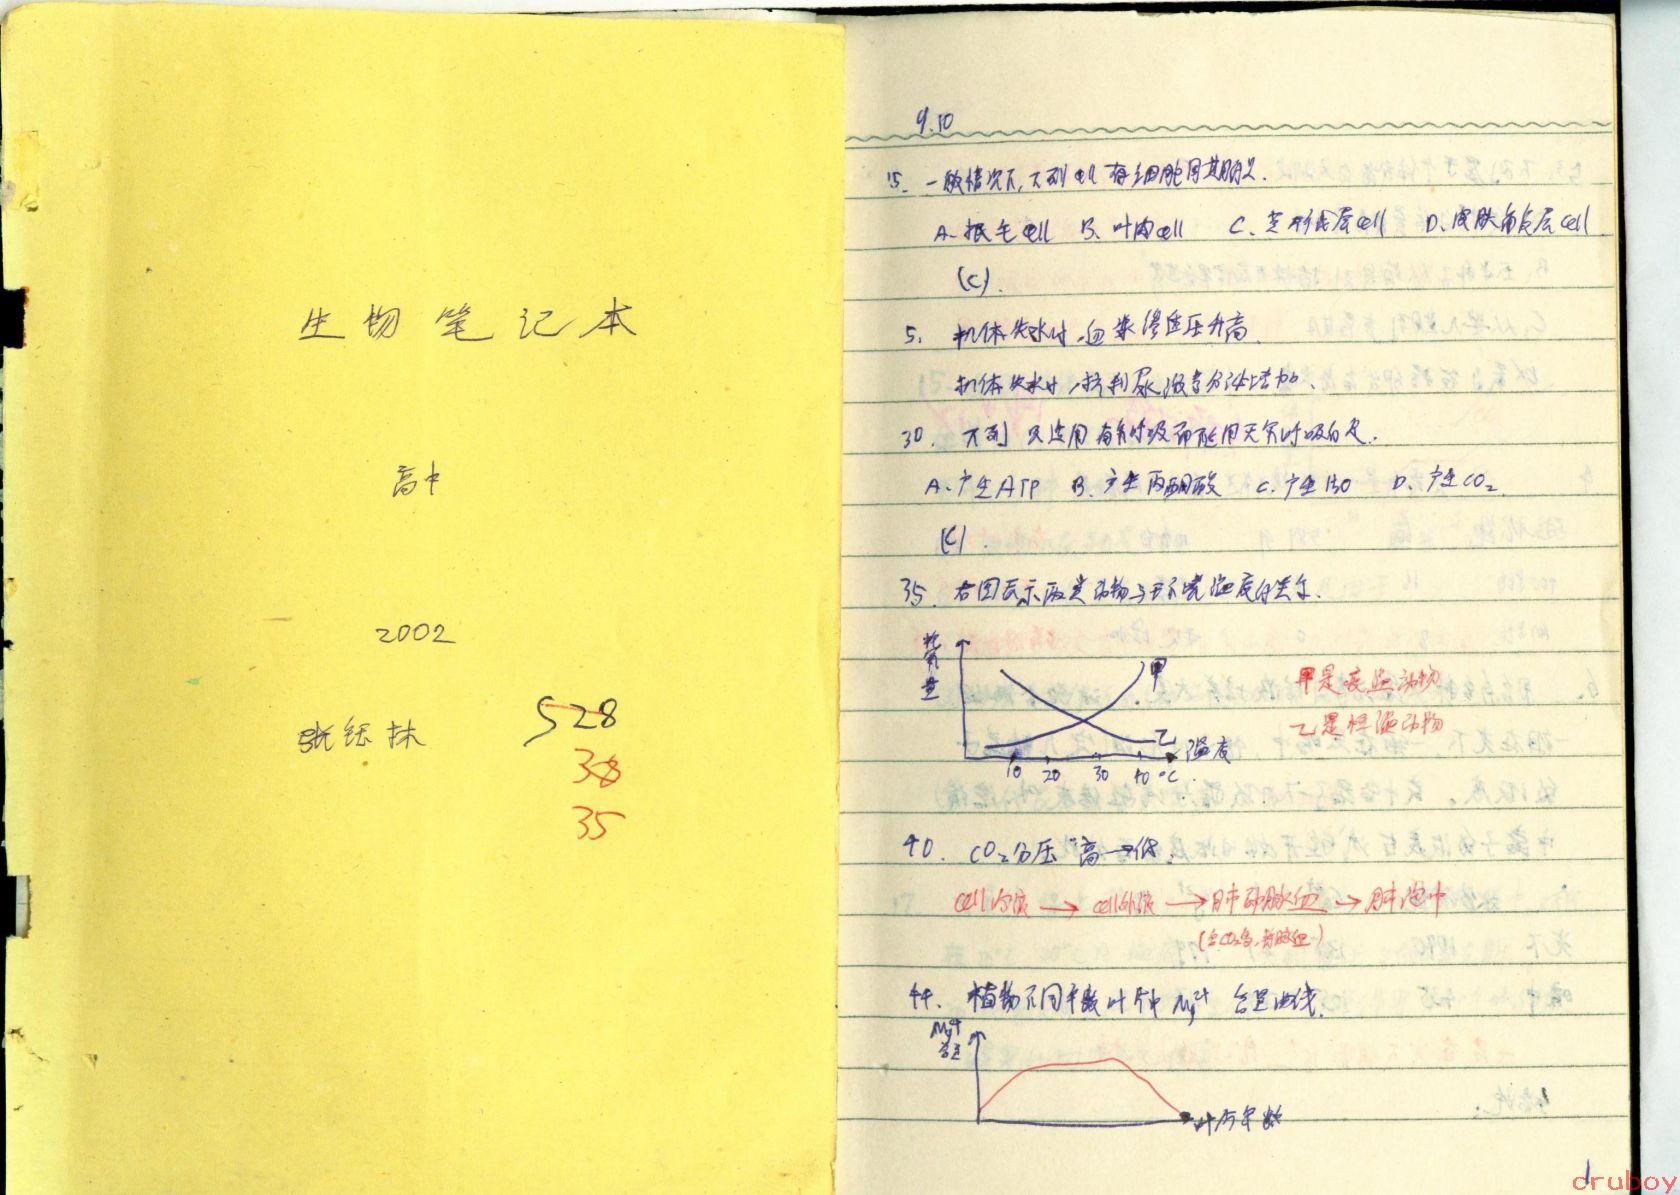 生物笔记本
高中
2002
528
38
35
9.10
15. 一般情况下,下列cell有细胞周期的是.
A. 根毛cell B. 叶肉cell C. 形成层cell D. 皮肤角质层cell
(C).
5. 机体失水时,血浆渗透压升高.
机体失水时,抗利尿激素分泌增加.
30. 下列 只适用有氧呼吸而不适用无氧呼吸的是.
A. 产生ATP B. 产生丙酮酸 C. 产生H2O D. 产生CO2.
(C).
35. 右图表示两类动物与环境温度的关系.
耗氧量
甲
乙
温度
10 20 30 40 ℃.
甲是变温动物
乙是恒温动物
40. CO2分压"高→低.
cell内液 → cell外液 → 肺动脉血 → 肺泡中
(含CO2多,静脉血)
44. 植物不同年龄叶片中 Mg2+ 含量曲线.
Mg2+
含量
叶片年龄
1
cruboy